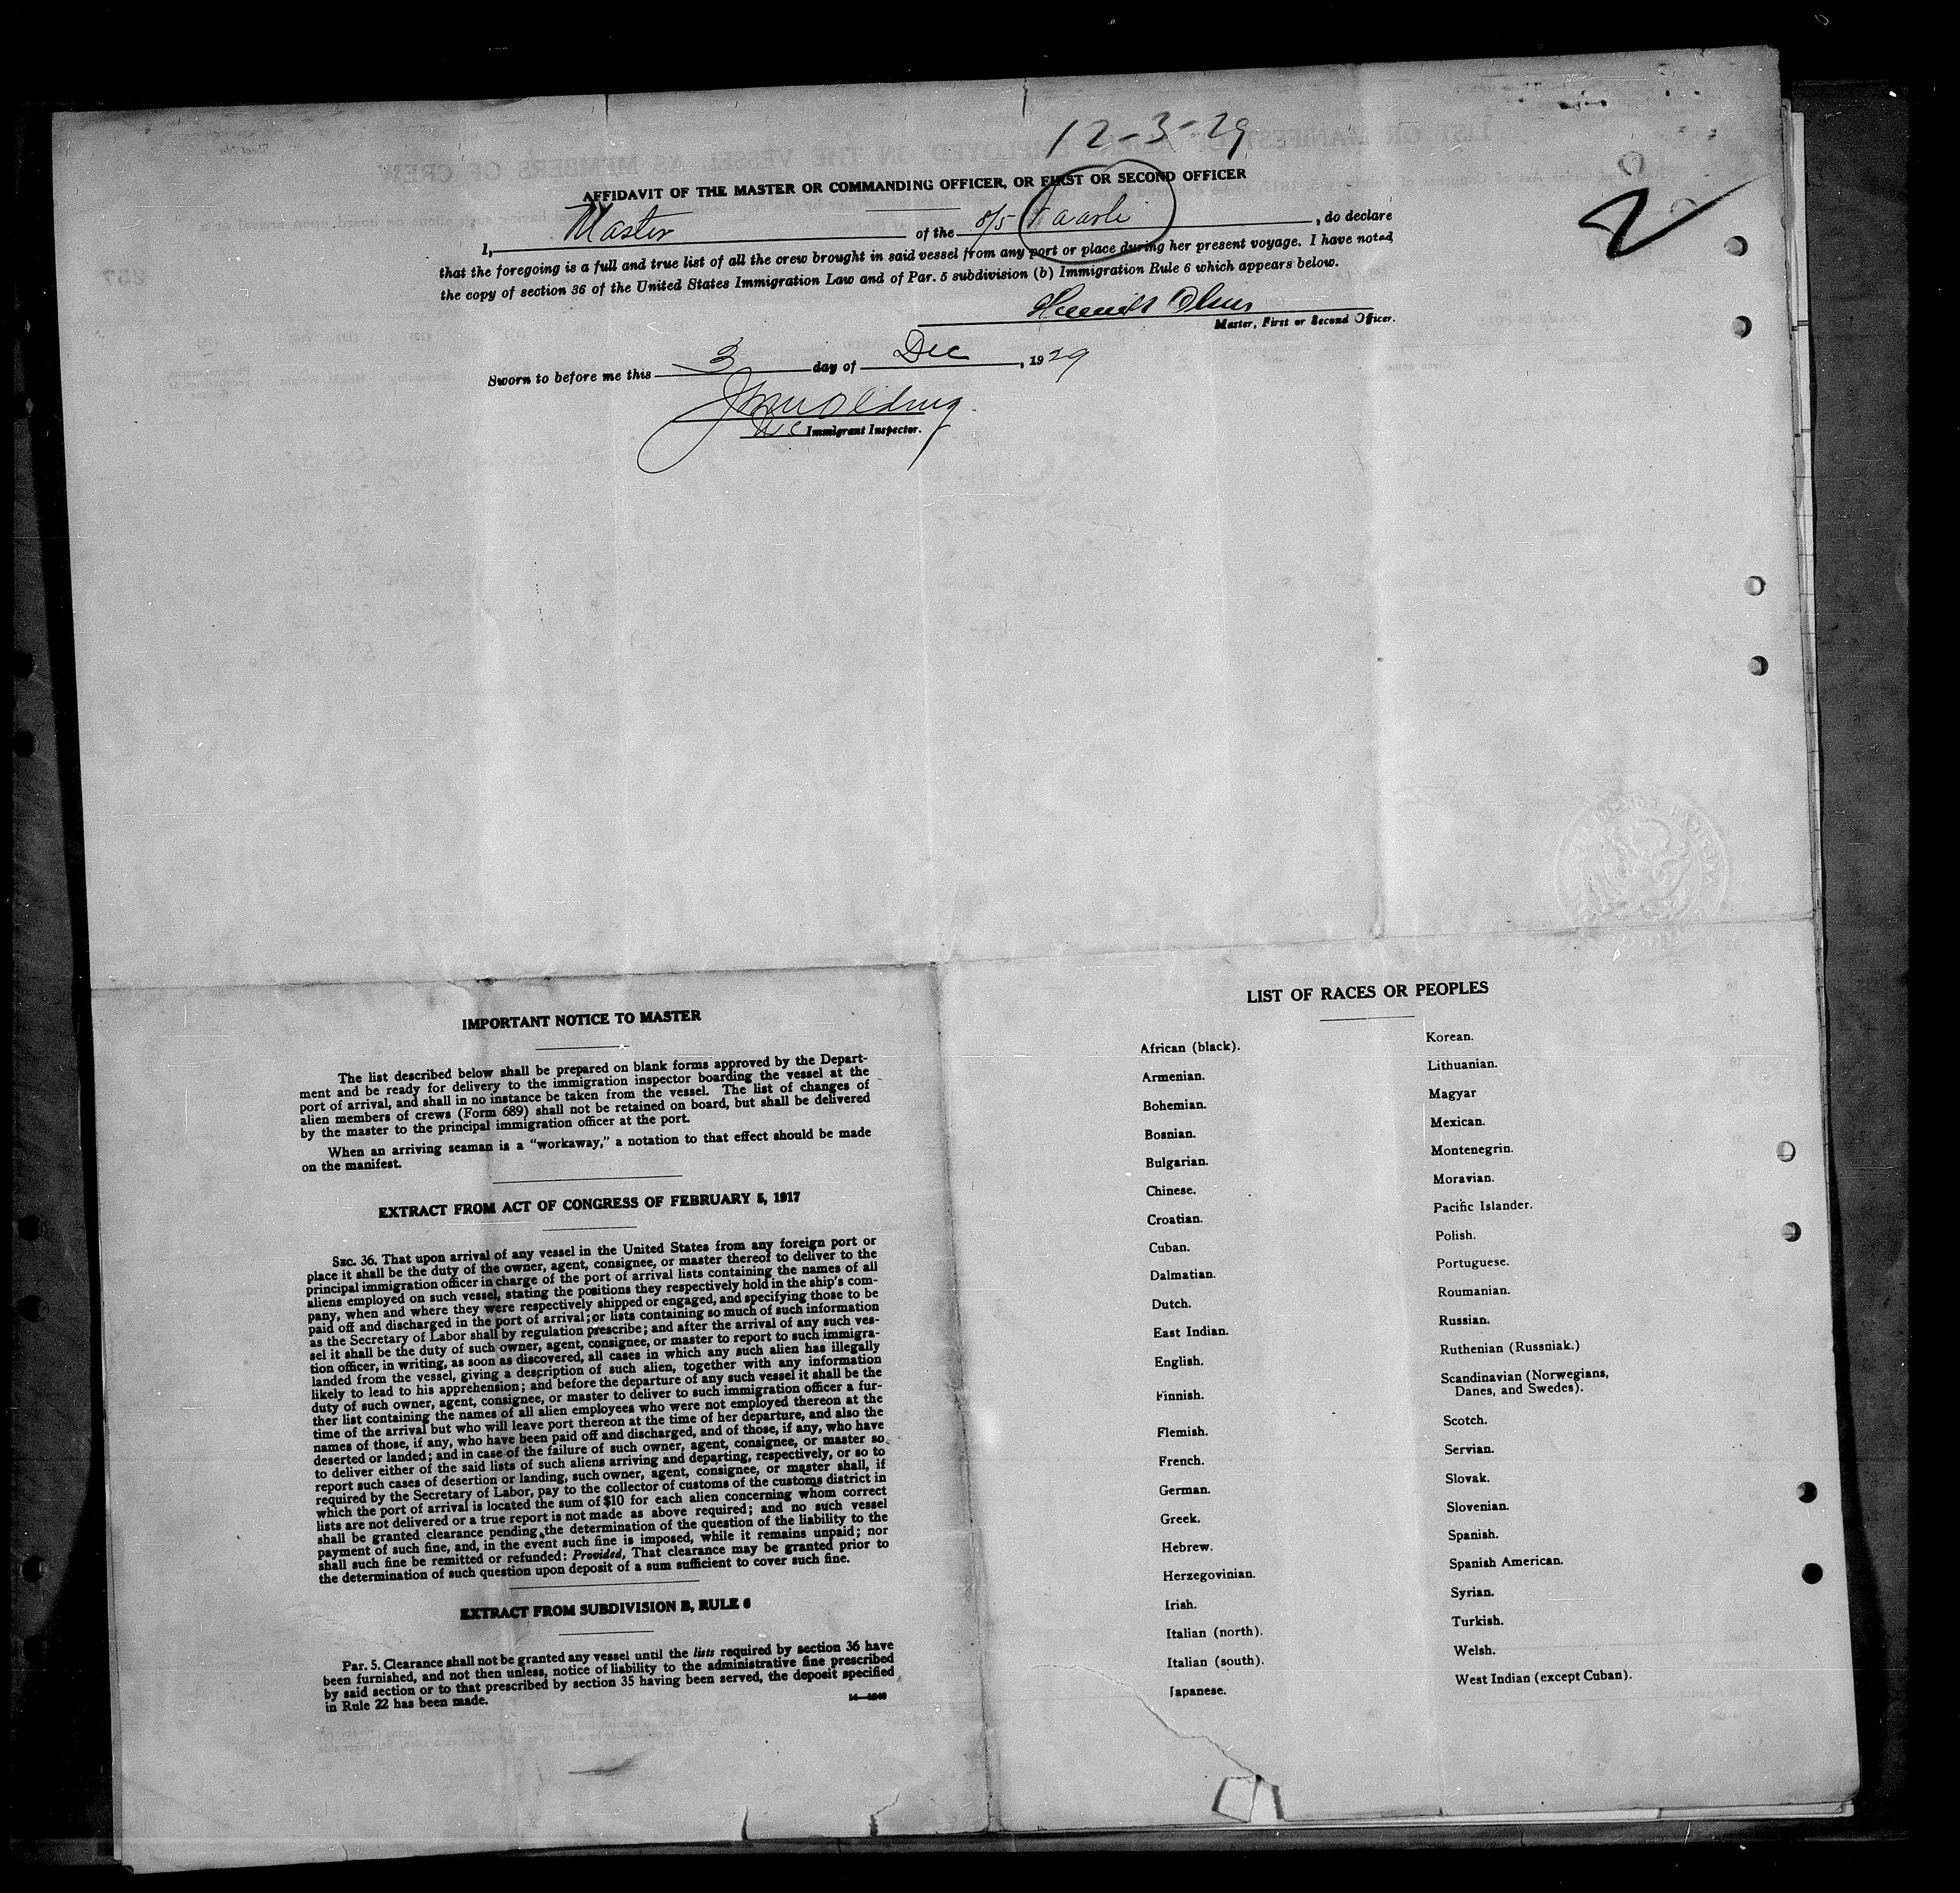 12-3-29
2
AFFIDAVIT OF THE MASTER OR COMMANDING OFFICER, OR FIRST OR SECOND OFFICER
I, Master of the S/S , do declare
that the foregoing is a full and true list of all the crew brought in said vessel from any port or place during her present voyage. I have noted
the copy of section 36 of the United States Immigration Law and of Par. 5 subdivision (b) Immigration Rule 6 which appears below.
Master, First or Second Officer.
Sworn to before me this 3 day of Dec, 1929
Immigrant Inspector.
IMPORTANT NOTICE TO MASTER
The list described below shall be prepared on blank forms approved by the Depart-
ment and be ready for delivery to the immigration inspector boarding the vessel at the
port of arrival, and shall in no instance be taken from the vessel. The list of changes of
alien members of crews (Form 689) shall not be retained on board, but shall be delivered
by the master to the principal immigration officer at the port.
When an arriving seaman is a "workaway," a notation to that effect should be made
on the manifest.
EXTRACT FROM ACT OF CONGRESS OF FEBRUARY 5, 1917
SEC. 36. That upon arrival of any vessel in the United States from any foreign port or
place it shall be the duty of the owner, agent, consignee, or master thereof to deliver to the
principal immigration officer in charge of the port of arrival lists containing the names of all
aliens employed on such vessel, stating the positions they respectively hold in the ship's com-
pany, when and where they were respectively shipped or engaged, and specifying those to be
paid off and discharged in the port of arrival; or lists containing so much of such information
as the Secretary of Labor shall by regulation prescribe; and after the arrival of any such ves-
sel it shall be the duty of such owner, agent, consignee, or master to report to such immigra-
tion officer, in writing, as soon as discovered, all cases in which any such alien has illegally
landed from the vessel, giving a description of such alien, together with any information
likely to lead to his apprehension; and before the departure of any such vessel it shall be the
duty of such owner, agent, consignee, or master to deliver to such immigration officer a fur-
ther list containing the names of all alien employees who were not employed thereon at the
time of the arrival but who will leave port thereon at the time of her departure, and also the
names of those, if any, who have been paid off and discharged, and of those, if any, who have
deserted or landed; and in case of the failure of such owner, agent, consignee, or master so
to deliver either of the said lists of such aliens arriving and departing, respectively, or so to
report such cases of desertion or landing, such owner, agent, consignee, or master shall, if
required by the Secretary of Labor, pay to the collector of customs of the customs district in
which the port of arrival is located the sum of $10 for each alien concerning whom correct
lists are not delivered or a true report is not made as above required; and no such vessel
shall be granted clearance pending the determination of the question of the liability to the
payment of such fine, and, in the event such fine is imposed, while it remains unpaid; nor
shall such fine be remitted or refunded: Provided, That clearance may be granted prior to
the determination of such question upon deposit of a sum sufficient to cover such fine.
EXTRACT FROM SUBDIVISION B, RULE 6
Par. 5. Clearance shall not be granted any vessel until the lists required by section 36 have
been furnished, and not then unless, notice of liability to the administrative fine prescribed
by said section or to that prescribed by section 35 having been served, the deposit specified
in Rule 22 has been made.
LIST OF RACES OR PEOPLES
African (black).
Armenian.
Bohemian.
Bosnian.
Bulgarian.
Chinese.
Croatian.
Cuban.
Dalmatian.
Dutch.
East Indian.
English.
Finnish.
Flemish.
French.
German.
Greek.
Hebrew.
Herzegovinian.
Irish.
Italian (north).
Italian (south).
Japanese.
Korean.
Lithuanian.
Magyar
Mexican.
Montenegrin.
Moravian.
Pacific Islander.
Polish.
Portuguese.
Roumanian.
Russian.
Ruthenian (Russniak.)
Scandinavian (Norwegians,
Danes, and Swedes).
Scotch.
Servian.
Slovak.
Slovenian.
Spanish.
Spanish American.
Syrian.
Turkish.
Welsh.
West Indian (except Cuban).